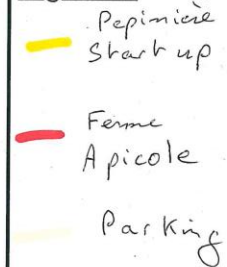 Pepinière
Start up
Ferme
Apicole
Parking